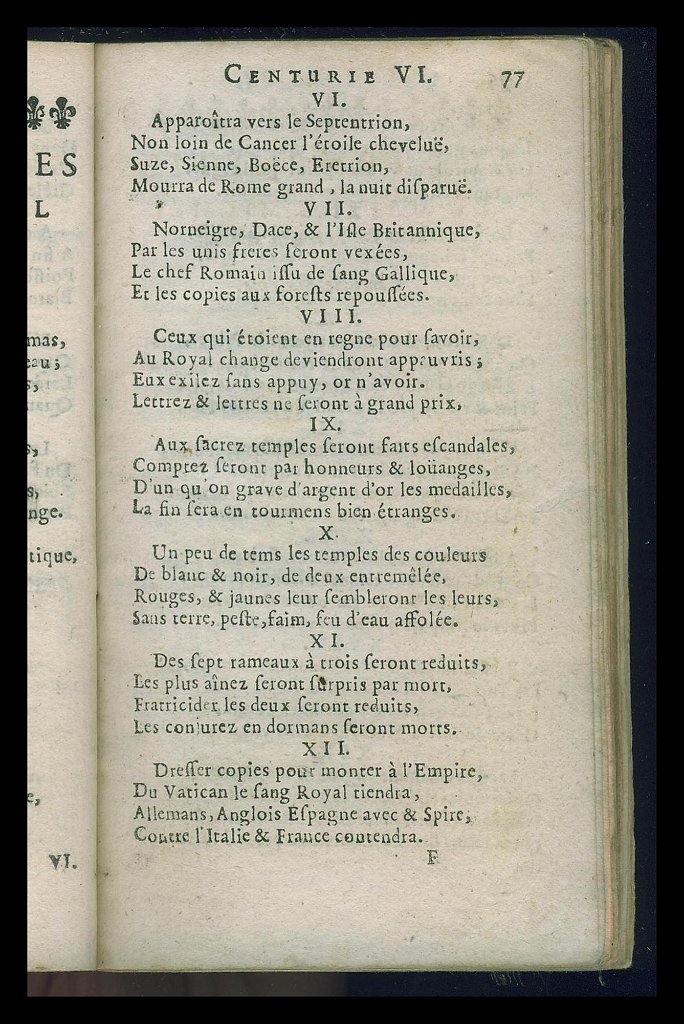 ES
L
mas,
eau;
s,
s,
s,
nge.
tique,
e,
VI.
CENTURIE VI. 77
VI.
Apparoîtra vers le Septentrion,
Non loin de Cancer l'étoile cheveluë,
Suze, Sienne, Boëce, Eretrion,
Mourra de Rome grand, la nuit diſparuë.
VII.
Norneigre, Dace, & l'Iſle Britannique,
Par les unis freres ſeront vexées,
Le chef Romain iſſu de ſang Gallique,
Et les copies aux foreſts repouſſées.
VIII.
Ceux qui étoient en regne pour ſavoir,
Au Royal change deviendront appauvris;
Eux exilez ſans appuy, or n'avoir.
Lettrez & lettres ne ſeront à grand prix,
IX.
Aux ſacrez temples ſeront faits eſcandales,
Comptez ſeront par honneurs & loüanges,
D'un qu'on grave d'argent d'or les medailles,
La fin ſera en tourmens bien étranges.
X.
Un peu de tems les temples des couleurs
De blanc & noir, de deux entremêlée,
Rouges, & jaunes leur ſembleront les leurs,
Sans terre, peſte, faim, feu d'eau affolée.
XI.
Des ſept rameaux à trois ſeront reduits,
Les plus aînez ſeront ſurpris par mort,
Fratricider les deux ſeront reduits,
Les conjurez en dormans ſeront morts.
XII.
Dreſſer copies pour monter à l'Empire,
Du Vatican le ſang Royal tiendra,
Allemans, Anglois Eſpagne avec & Spire,
Contre l'Italie & France contendra.
F